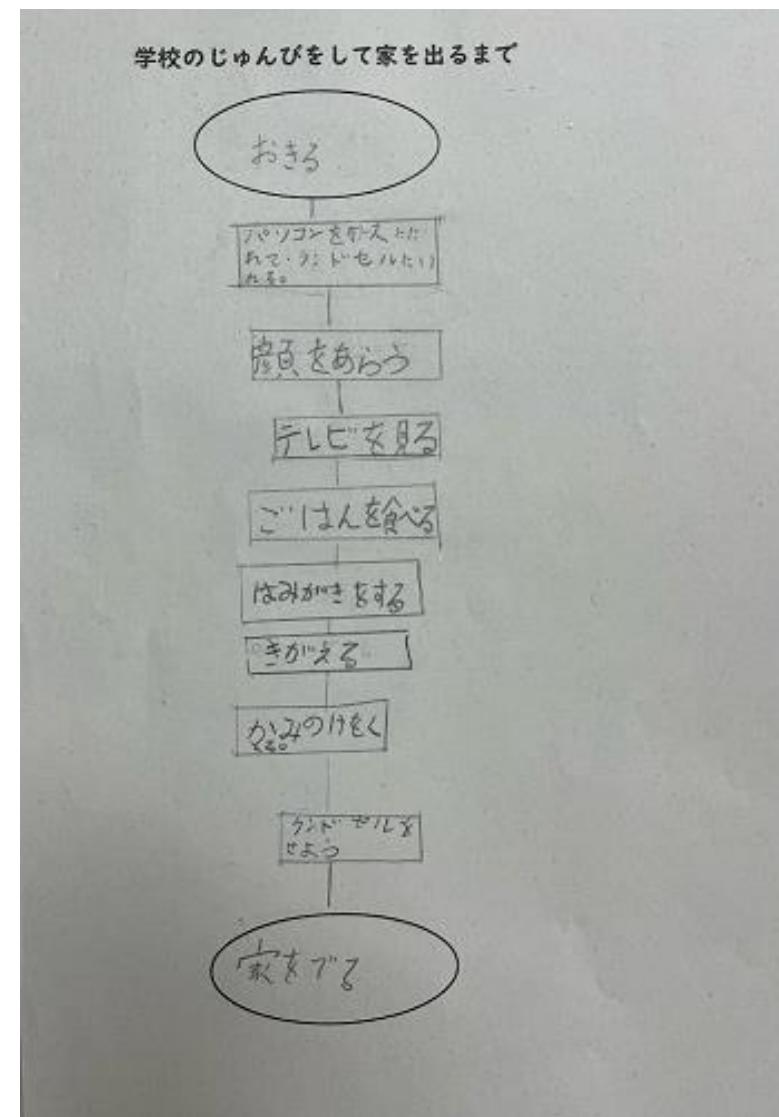 学校のじゅんびをして家を出るまで
おきる
パソコンをケースにい
れて、ランドセルにい
れる。
顔をあらう
テレビを見る
ごはんを食べる
はみがきをする
きがえる
かみのけをく
くる。
ランドセルを
せよう
家をでる